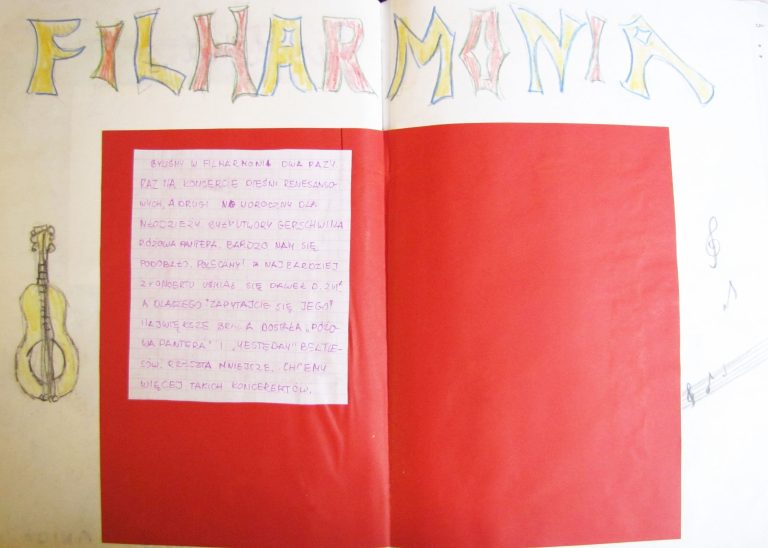 FILHARMONIA
BYLIŚMY W FILHARMONII DWA RAZY
RAZ NA KONCERCIE PIEŚNI RENESANSO-
WYCH, A DRUGI NA DLA
MŁODZIEŻY. BYŁY UTWORY GERSCHWINA
RÓŻOWA PANTERA. BARDZO NAM SIĘ
PODOBAŁO. POLECAMY! NAJBARDZIEJ
Z KONCERTU UŚMIAŁ SIĘ PAWEŁ D.
A DLACZEGO "ZAPYTAJCIE SIĘ JEGO"
NAJWIĘKSZE BRAWA DOSTAŁA „RÓŻO-
WA PANTERA" I „YESTEDAY" BEATLE-
SÓW. RESZTA MNIEJSZE. CHCEMY
WIĘCEJ TAKICH KONCERERTÓW.